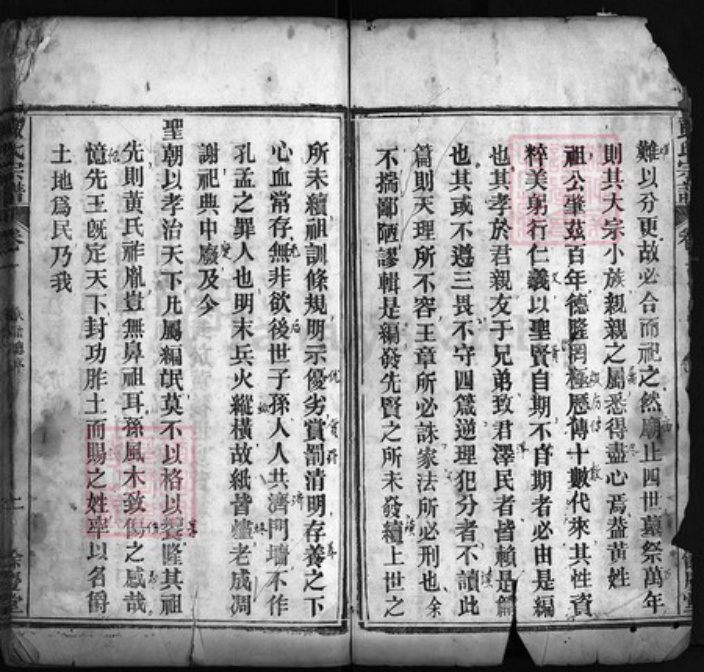 難以分更故必合而祀之然廟止四世墓祭萬年
則其大宗小族親親之屬悉得盡心焉益黃姓
祖公肇茲百年德隆罔極歷傳十數代來其性資
粹美躬行仁義以聖賢自期不自期者必由是編
也其孝於君親友于兄弟致君澤民者皆賴是篇
也其或不遵三畏不守四箴逆理犯分者不讀此
篇則天理所不容王章所必誅家法所必刑也余
不揣鄙陋謬輯是編發先賢之所未發續上世之
所未續祖訓條規明示優劣賞罰清明存養之下
心血常存無非欲後世子孫人人共濟門墻不作
孔孟之罪人也明末兵火縱橫故紙皆燼老成凋
謝祀典中廢及今
聖朝以孝治天下凡屬編氓莫不以格以襲隆其祖
先則黃氏祚胤豈無鼻祖耳孫風木致傷之感哉
憶先王既定天下封功胙土而賜之姓率以名爵
土地爲民乃我
氏宗譜
卷
二
餘慶堂